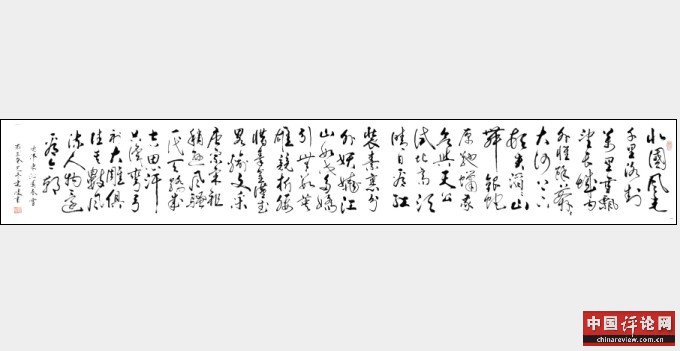 北國風光
千里冰封
萬里雪飄
望長城內
外惟餘莽々
大河上下
頓失滔々山
舞銀蛇
原馳蠟象
欲與天公
試比高須
晴日看紅
裝素裹分
外妖嬈江
山如此多嬌
引無數英
雄競折腰
惜秦皇漢武
略輸文采
唐宗宋祖
稍遜風騷
一代天驕成
吉思汗
只識彎弓
射大雕俱
往矣數風
流人物還
看今朝
毛澤東沁園春雪
中国评论网
chinareview.com.cn